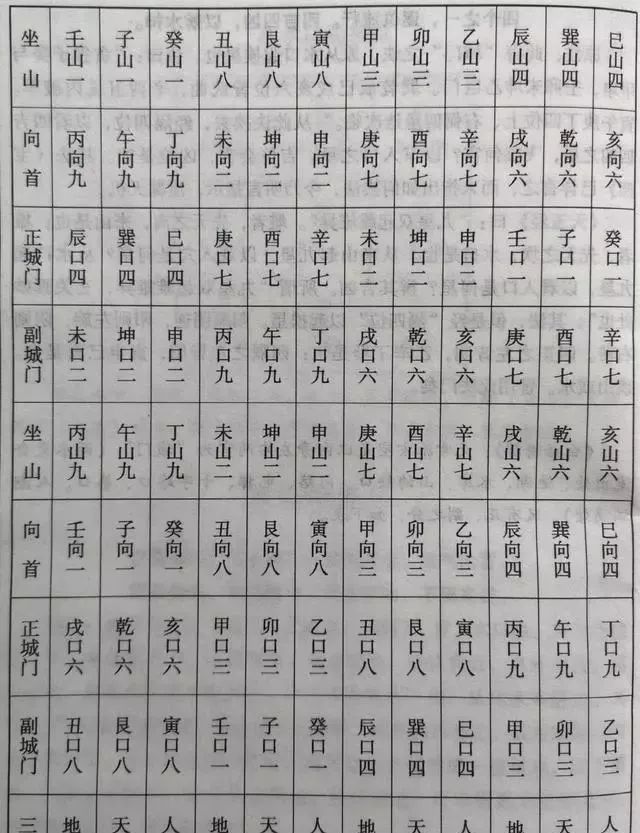 坐山 壬山一 子山一 癸山一 丑山八 艮山八 寅山八 甲山三 卯山三 乙山三 辰山四 巽山四 巳山四
向首 丙向九 午向九 丁向九 未向二 坤向二 申向二 庚向七 酉向七 辛向七 戌向六 乾向六 亥向六
正城门 辰口四 巽口四 巳口四 庚口七 酉口七 辛口七 未口二 坤口二 申口二 壬口一 子口一 癸口一
副城门 未口二 坤口二 申口二 丙口九 午口九 丁口九 戌口六 乾口六 亥口六 庚口七 酉口七 辛口七
坐山 丙山九 午山九 丁山九 未山二 坤山二 申山二 庚山七 酉山七 辛山七 戌山六 乾山六 亥山六
向首 壬向一 子向一 癸向一 丑向八 艮向八 寅向八 甲向三 卯向三 乙向三 辰向四 巽向四 巳向四
正城门 戌口六 乾口六 亥口六 甲口三 卯口三 乙口三 丑口八 艮口八 寅口八 丙口九 午口九 丁口九
副城门 丑口八 艮口八 寅口八 壬口一 子口一 癸口一 辰口四 巽口四 巳口四 甲口三 卯口三 乙口三
三 地 天 人 地 天 人 地 天 人 地 天 人